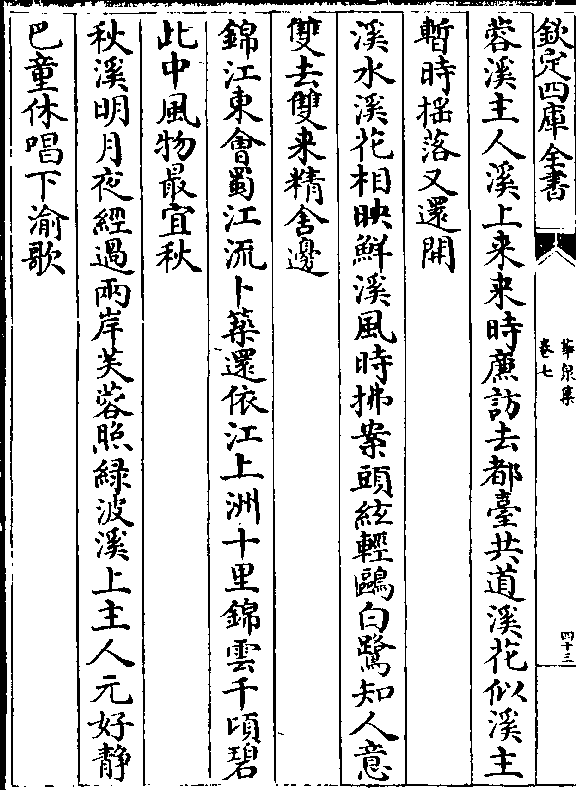 欽定四庫全書
華泉集
卷七
四十三
蓉溪主人溪上来来時廉訪去都臺共道溪花似溪主
暫時揺落又還開
溪水溪花相映鮮溪風時拂案頭絃輕鷗白鷺知人意
雙去雙来精舍邊
錦江東會蜀江流卜築還依江上洲十里錦雲千頃碧
此中風物最宜秋
秋溪明月夜經過兩岸芙蓉照綠波溪上主人元好静
巴童休唱下渝歌